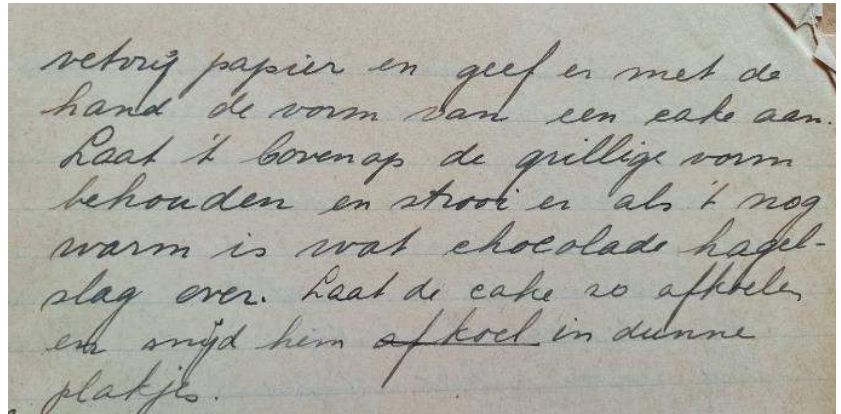 vetvrij papier en geef er met de
hand de vorm van een cake aan.
Laat 't bovenop de grillige vorm
behouden en strooi er als 't nog
warm is wat chocolade hagel-
slag over. Laat de cake zo afkoelen
en snijd hem afkoel in dunne
plakjes.